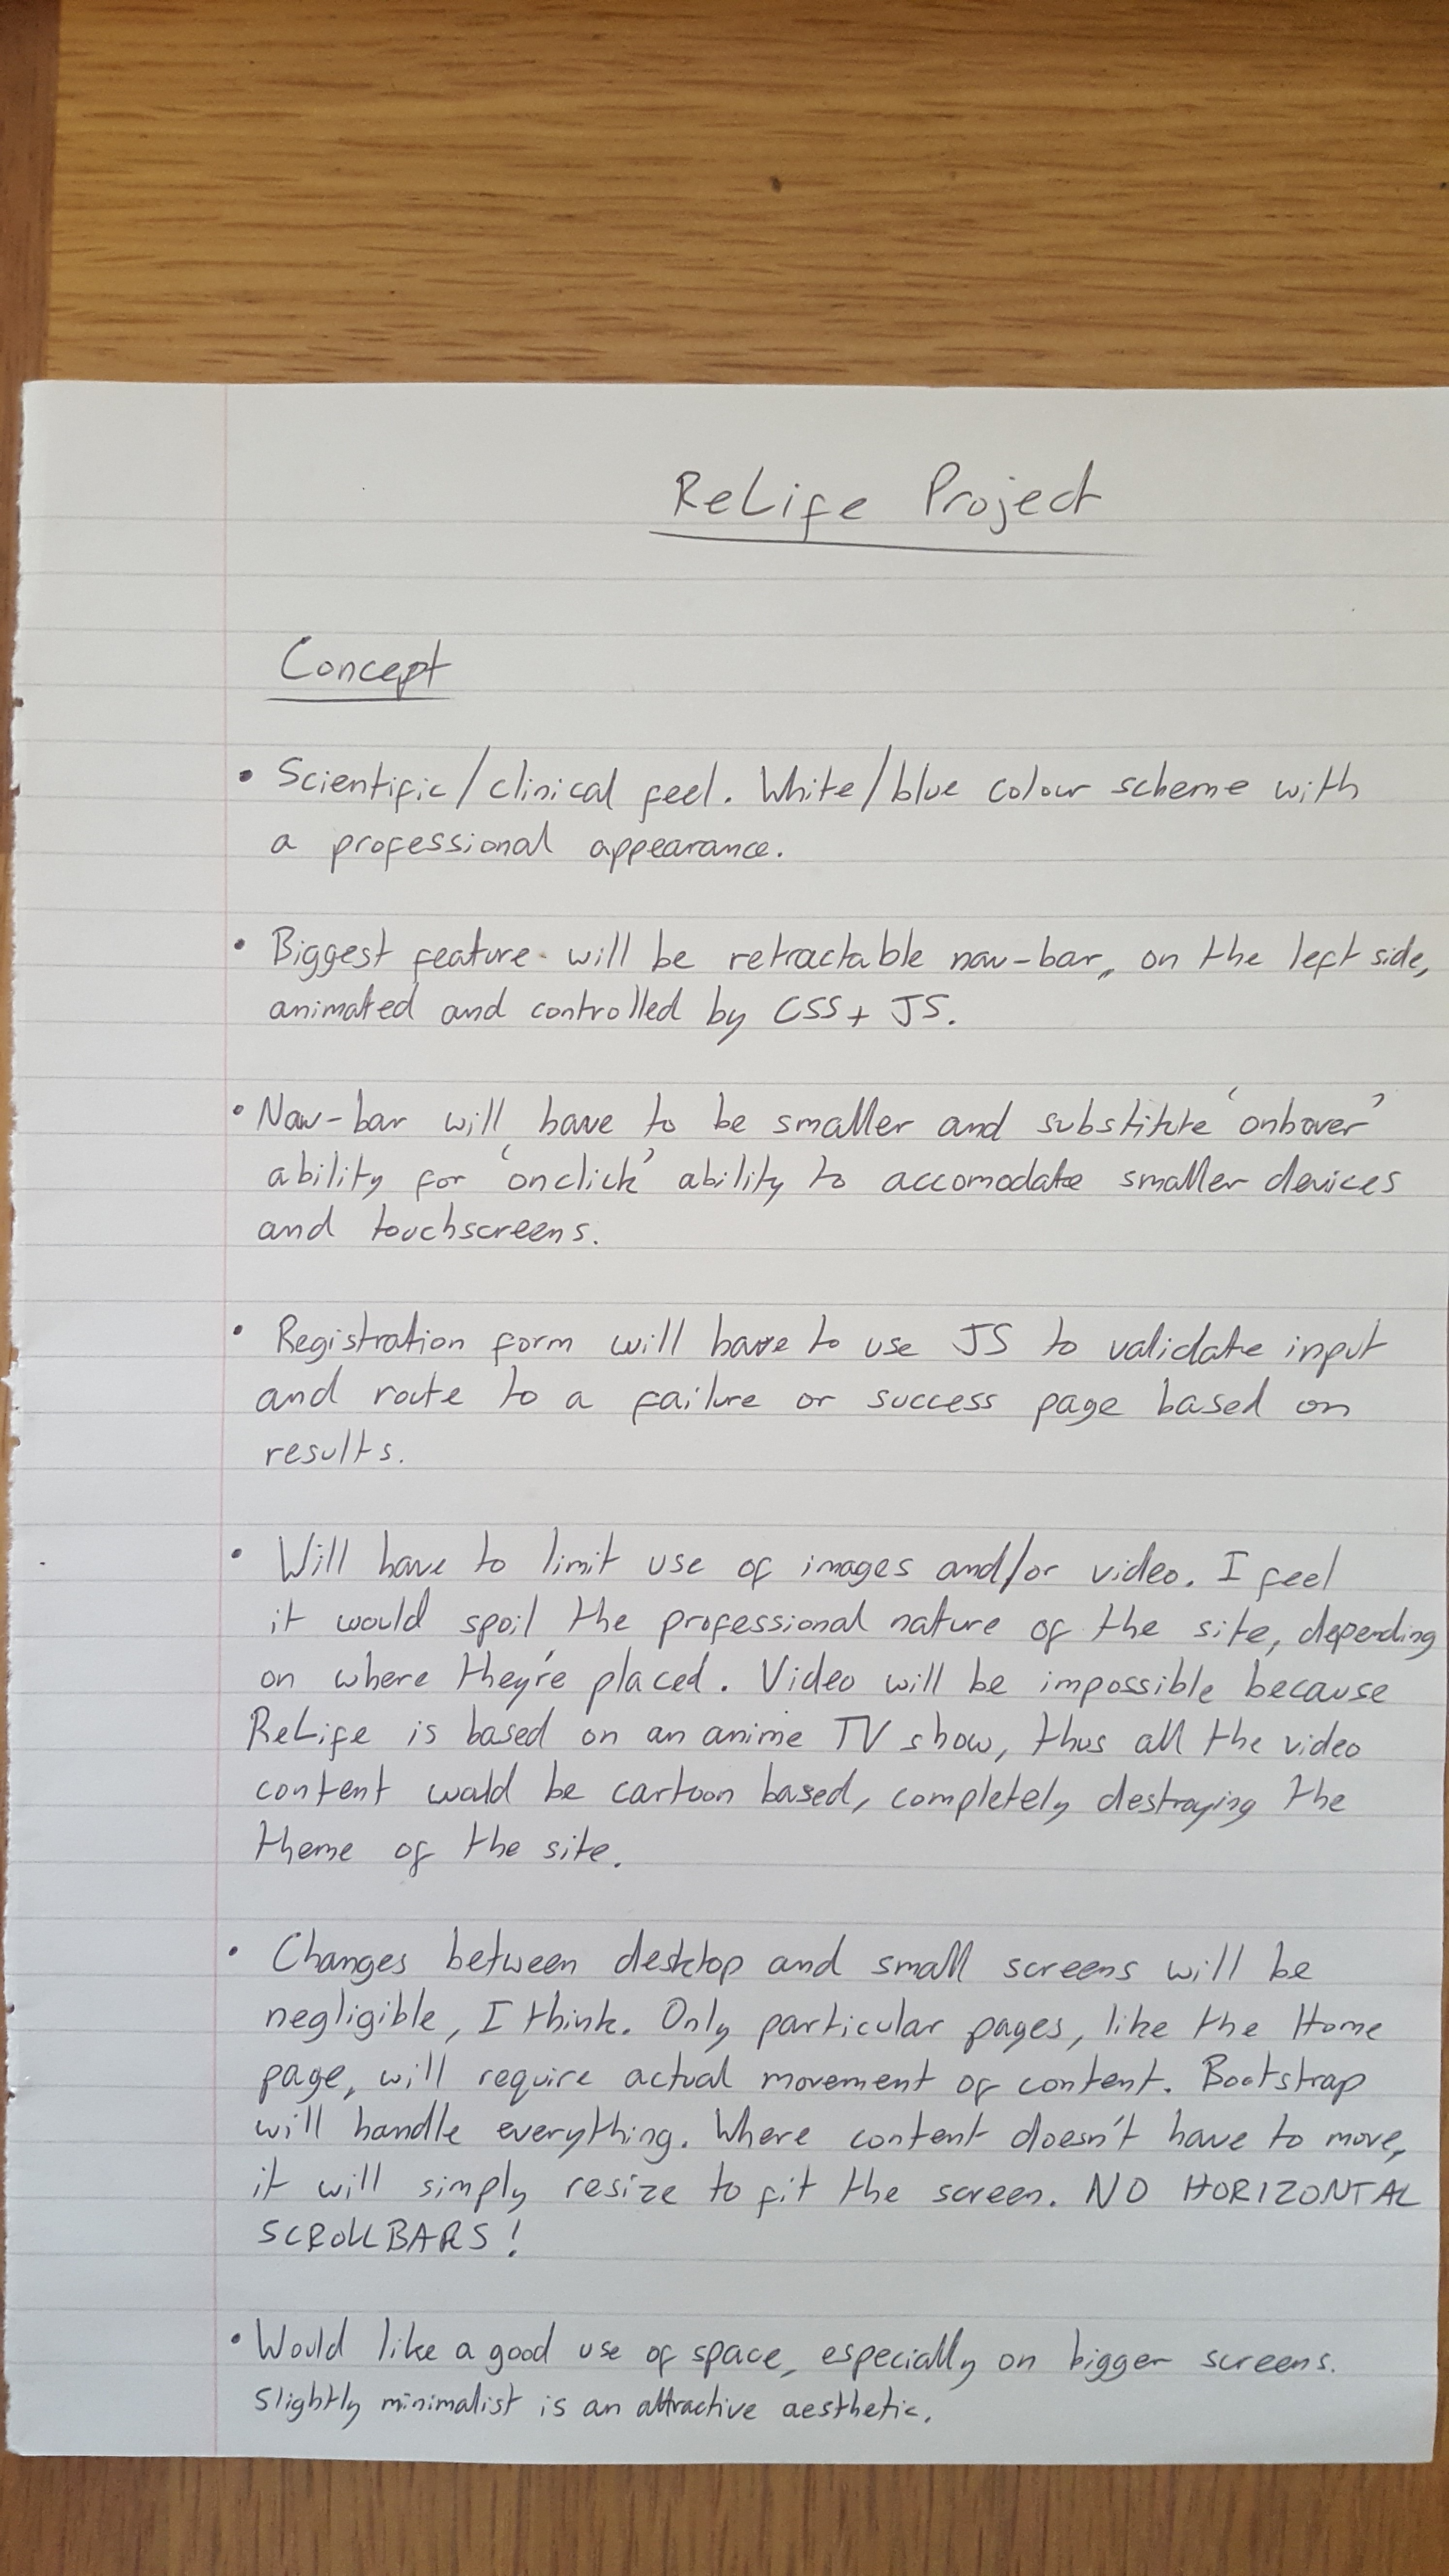 ReLife Project
Concept
• Scientific/clinical feel. White/blue colour scheme with
a professional appearance.
• Biggest feature will be retractable nav-bar, on the left side,
animated and controlled by CSS + JS.
• Nav-bar will have to be smaller and substitute 'onhover'
ability for 'onclick' ability to accomodate smaller devices
and touchscreens.
• Registration form will have to use JS to validate input
and route to a failure or success page based on
results.
• Will have to limit use of images and/or video. I feel
it would spoil the professional nature of the site, depending
on where they're placed. Video will be impossible because
ReLife is based on an anime TV show, thus all the video
content would be cartoon based, completely destroying the
theme of the site.
• Changes between desktop and small screens will be
negligible, I think. Only particular pages, like the Home
page, will require actual movement of content. Bootstrap
will handle everything. Where content doesn't have to move,
it will simply resize to fit the screen. NO HORIZONTAL
SCROLLBARS!
• Would like a good use of space, especially on bigger screens.
Slightly minimalist is an attractive aesthetic.